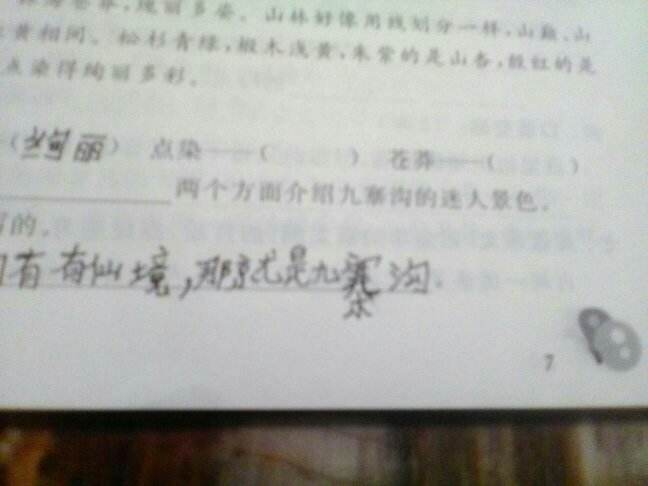 海苍莽,瑰丽多姿。山林好像用线划分一样,山巅、山
黄相间。松杉青绿,椴木浅黄,朱紫的是山杏,殷红的是
点染得绚丽多彩。
(绚丽) 点染——( ) 苍莽——( )
两个方面介绍九寨沟的迷人景色。
的。
有 仙境,那就是九寨沟.
7